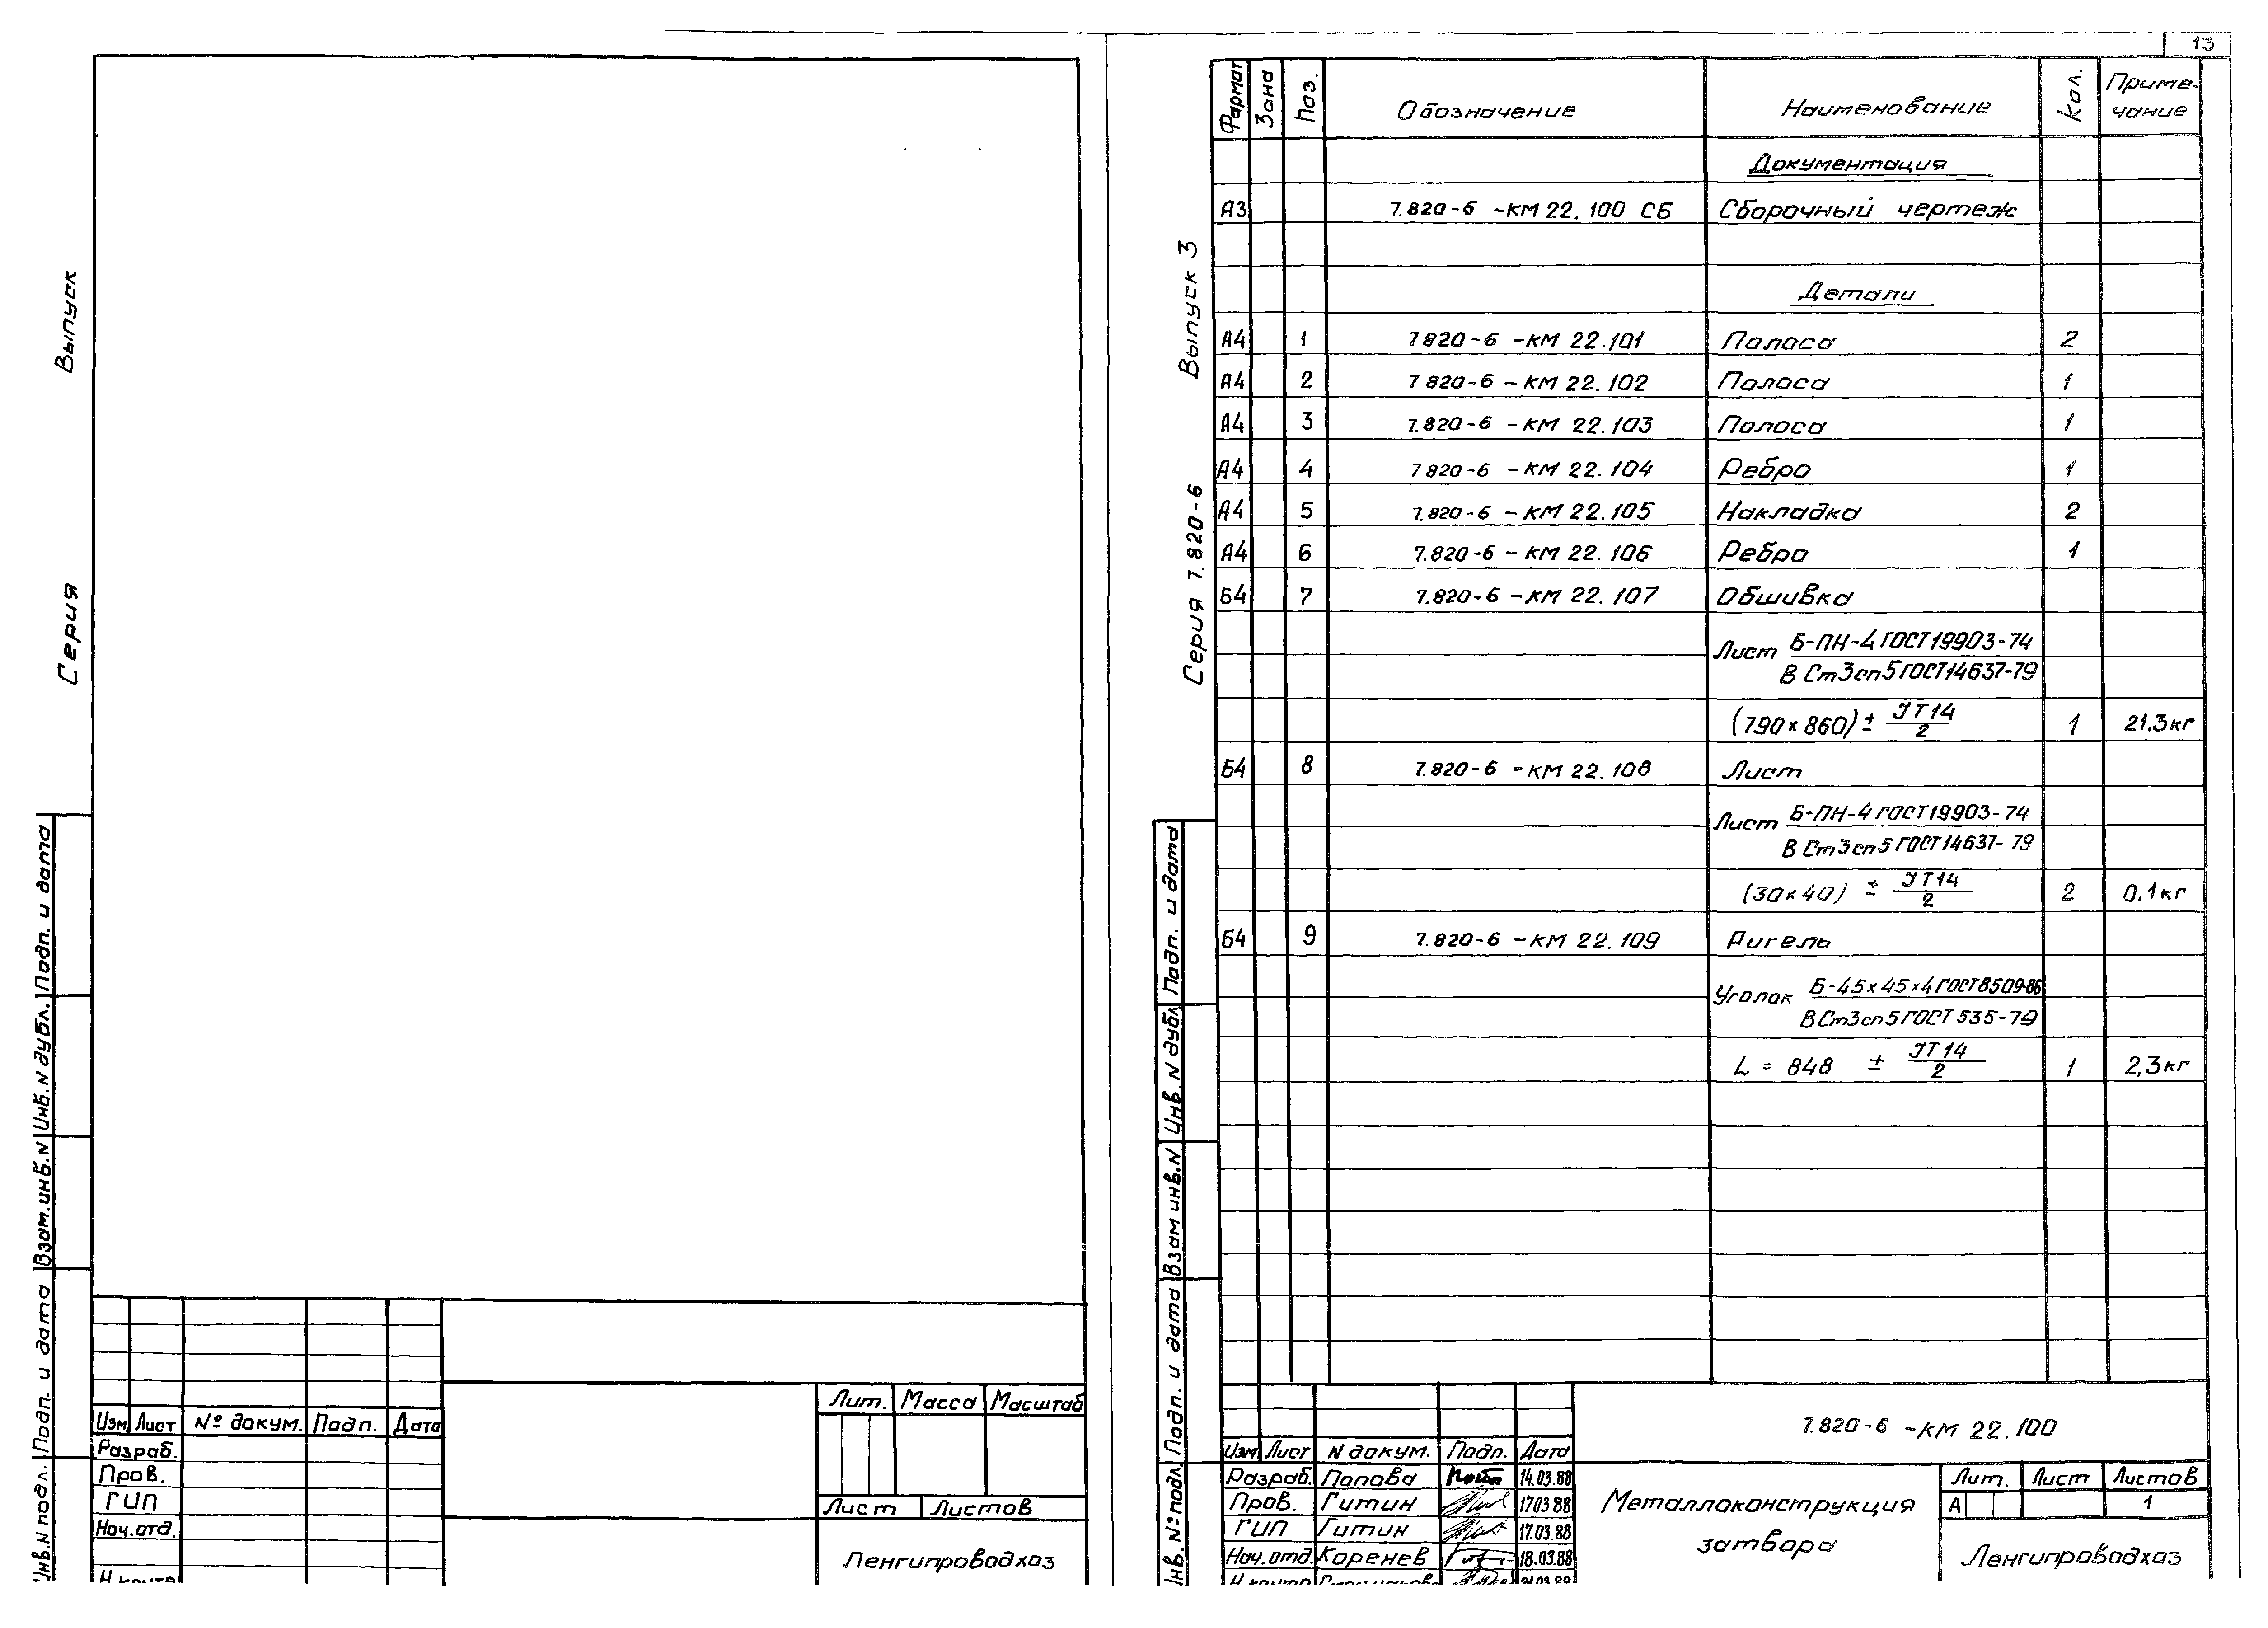 Серия Выпуск
Инв.N подл. Подп. и дата Взам.инв.N Инв.N дубл. Подп. и дата
Изм Лист № докум. Подп. Дата
Разраб.
Пров.
ГИП
Нач.отд.
Лит. Масса Масштаб
Лист Листов
Ленгипроводхоз
13
Серия 7.820-6 Выпуск 3
Инв.№ подл. Подп. и дата Взам инв.N Инв.N дубл. Подп. и дата
Формат Зона Поз. Обозначение Наименование Кол. Приме-
чание
Документация
А3 7.820-6 -КМ 22.100 СБ Сборочный чертеж
Детали
А4 1 7 820-6 -КМ 22.101 Полоса 2
А4 2 7 820-6 -КМ 22.102 Полоса 1
А4 3 7.820-6 -КМ 22.103 Полоса 1
А4 4 7 820-6 -КМ 22.104 Ребро 1
А4 5 7.820-6 -КМ 22.105 Накладка 2
А4 6 7.820-6 -КМ 22.106 Ребро 1
Б4 7 7.820-6 -КМ 22.107 Обшивка
Лист Б-ПН-4 ГОСТ19903-74
В Ст3сп5 ГОСТ14637-79
(790×860) ± JT14/2 1 21.3кг
Б4 8 7.820-6 -КМ 22.108 Лист
Лист Б-ПН-4 ГОСТ19903-74
В Ст3сп5 ГОСТ14637-79
(30×40) ± JT14/2 2 0.1кг
Б4 9 7.820-6 -КМ 22.109 Ригель
Уголок Б-45×45×4 ГОСТ8509-86
В Ст3сп5 ГОСТ 535-79
L = 848 ± JT14/2 1 2,3кг
7.820-6 -КМ 22.100
Изм Лист N докум. Подп. Дата
Разраб. Попова 14.03.88
Пров. Гитин 17.03 88
ГИП Гитин 17.03.88
Нач.отд. Коренев 18.03.88
Металлоконструкция
затвора
Лит. Лист Листов
А 1
Ленгипроводхоз